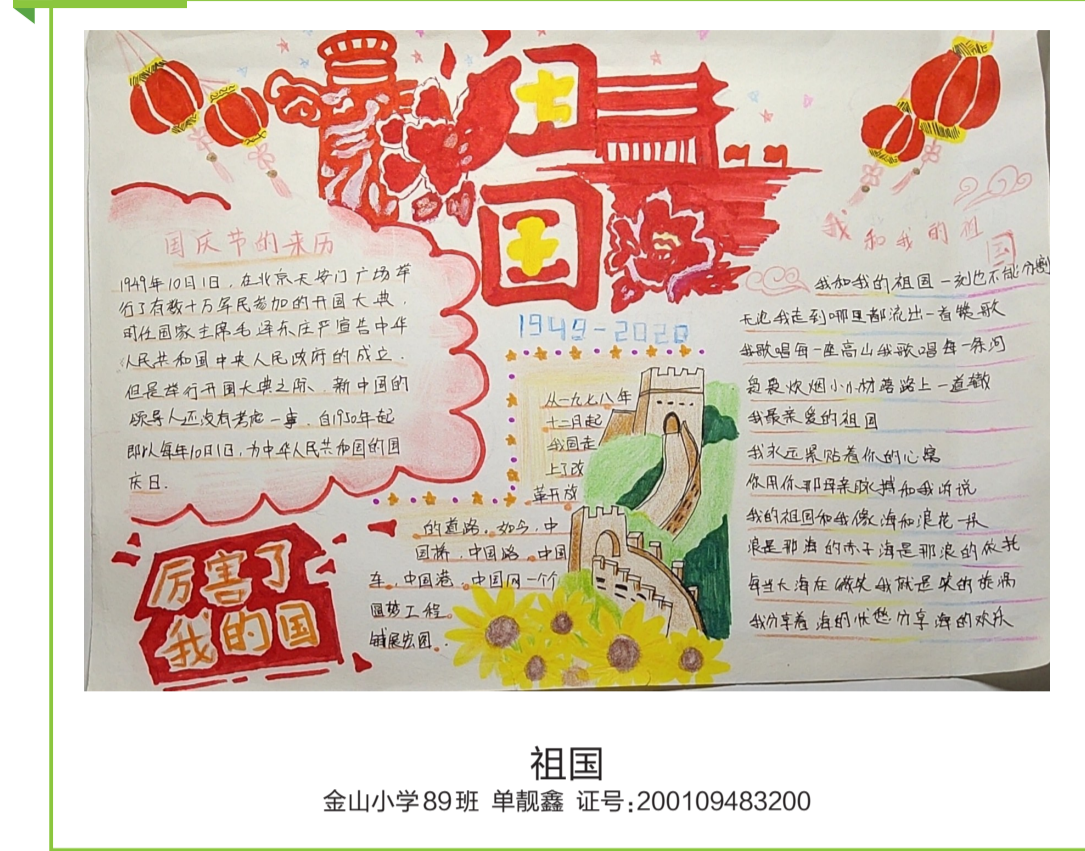 祖
国
1949-2020
国庆节的来历
1949年10月1日，在北京天安门广场举
行了有数十万军民参加的开国大典，
时任国家主席毛泽东庄严宣告中华
人民共和国中央人民政府的成立．
但是举行开国大典之际、新中国的
领导人还没有考虑一事．自1950年起
即以每年10月1日，为中华人民共和国的国
庆日．
厉害了
我的国
从一九七八年
十二月起
我国走
上了改
革开放
的道路．如今，中
国桥，中国路，中国
车，中国港，中国网一个个
圆梦工程
铺展宏图．
我和我的祖
国
我和我的祖国一刻也不能分割
无论我走到哪里都流出一首赞歌
我歌唱每一座高山我歌唱每一条河
袅袅炊烟小小村落路上一道辙
我最亲爱的祖国
我永远紧贴着你的心窝
你用你那母亲脉搏和我诉说
我的祖国和我像海和浪花一朵
浪是那海的赤子海是那浪的依托
每当大海在微笑我就是笑的旋涡
我分享着海的忧愁分享海的欢乐
祖国
金山小学89班 单靓鑫 证号:200109483200